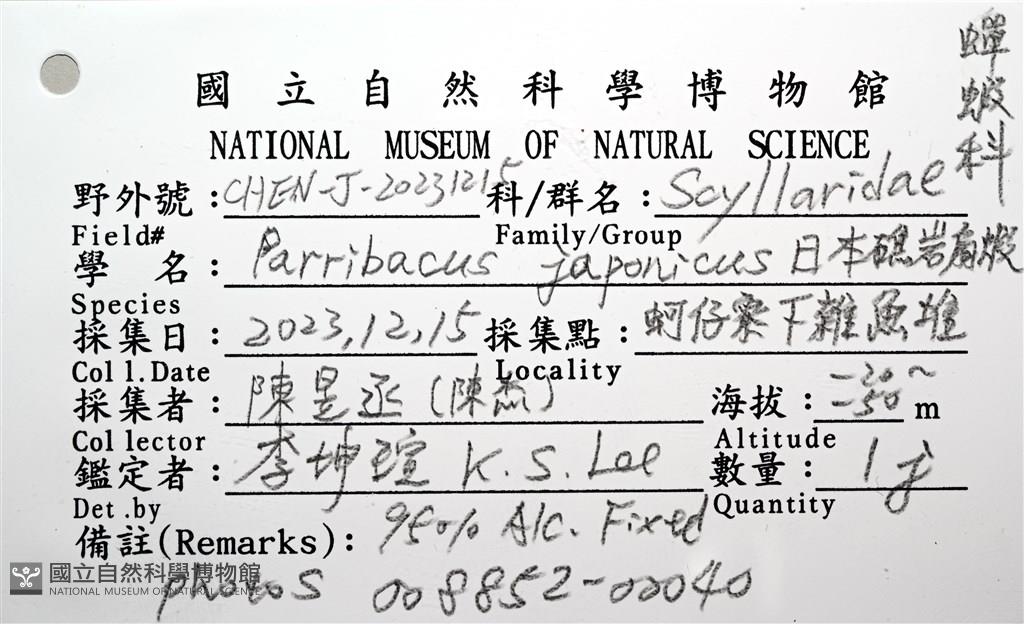 蟬蝦科
國立自然科學博物館
NATIONAL MUSEUM OF NATURAL SCIENCE
野外號:CHEN-J-20231215 科/群名:Scyllaridae
Field# Family/Group
學 名:Parribacus japonicus 日本礁岩扁蝦
Species
採集日:2023,12,15 採集點:蚵仔寮下雜魚堆
Coll.Date Locality
採集者:陳昱丞(陳杰) 海拔:-20~-50 m
Collector Altitude
鑑定者:李坤瑄 K.S. Lee 數量:1 j
Det.by Quantity
備註(Remarks):95% Alc. Fixed
photos 008852-00040
國立自然科學博物館
NATIONAL MUSEUM OF NATURAL SCIENCE